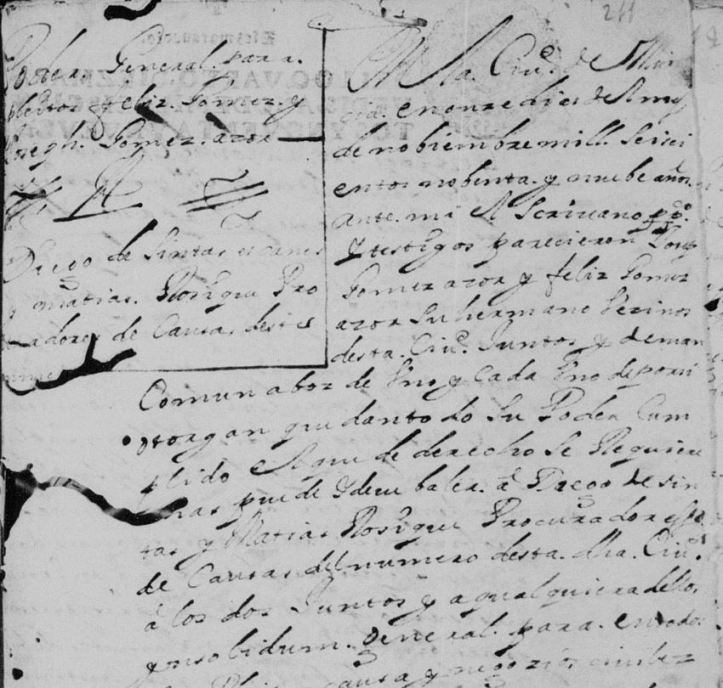 211
Poder General para
pleitos feliz Gomez y
Joseph Gomez azor
Diego de Sintas
y matias Rodrigue Pro
cuadores de Causas desta
En la Ciu.d de Mur
cia en onze dias del mes
de nobiembre mill Seisci
entos nobenta y nuebe años
ante mi el Scriuano pp.o
y testigos parecieron
Gomez azor y feliz Gomez
azor Su hermano Vezinos
desta Ciu.d Juntos y de man
Comun a boz de Vno y Cada Vno de por si
otorgan que dan todo Su Poder Cum
plido el que de derecho Se Requiere
mas puede y deue baler a Diego de Sin
tas y Matias Rodrigue Procuradores
de Causas del numero desta dha Ciu.d
a los dos Juntos y a qualquiera dellos
ynsolidum General para en todos
Causas y negozios ziuiles